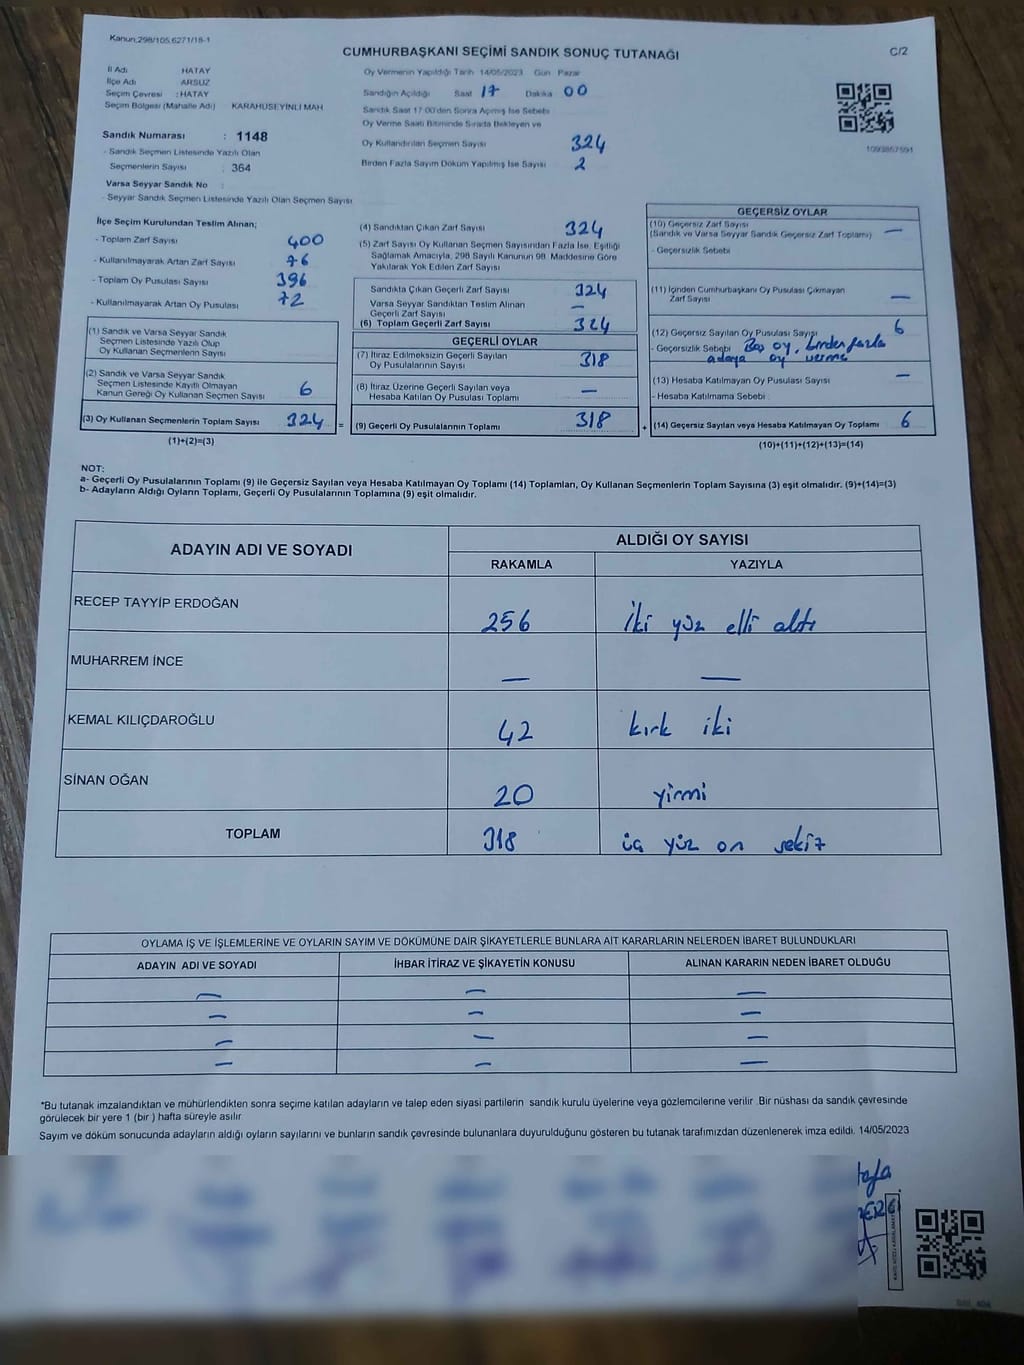 Kanun.298/105,6271/18-1
CUMHURBAŞKANI SEÇİMİ SANDIK SONUÇ TUTANAĞI
C/2
İl Adı HATAY
İlçe Adı ARSUZ
Seçim Çevresi : HATAY
Seçim Bölgesi (Mahalle Adı) KARAHÜSEYİNLİ MAH
Sandık Numarası : 1148
- Sandık Seçmen Listesinde Yazılı Olan
Seçmenlerin Sayısı : 364
Varsa Seyyar Sandık No
- Seyyar Sandık Seçmen Listesinde Yazılı Olan Seçmen Sayısı
Oy Vermenin Yapıldığı Tarih 14/05/2023 Gün Pazar
Sandığın Açıldığı Saat 17 Dakika 00
Sandık Saat 17:00'den Sonra Açılmış İse Sebebi
Oy Verme Saati Bitiminde Sırada Bekleyen ve
Oy Kullandırılan Seçmen Sayısı 324
Birden Fazla Sayım Döküm Yapılmış İse Sayısı 2
1093857591
İlçe Seçim Kurulundan Teslim Alınan;
- Toplam Zarf Sayısı 400
- Kullanılmayarak Artan Zarf Sayısı 76
- Toplam Oy Pusulası Sayısı 396
- Kullanılmayarak Artan Oy Pusulası 72
(1) Sandık ve Varsa Seyyar Sandık
Seçmen Listesinde Yazılı Olup
Oy Kullanan Seçmenlerin Sayısı
(2) Sandık ve Varsa Seyyar Sandık
Seçmen Listesinde Kayıtlı Olmayan
Kanun Gereği Oy Kullanan Seçmen Sayısı 6
(3) Oy Kullanan Seçmenlerin Toplam Sayısı 324 =
(1)+(2)=(3)
(4) Sandıktan Çıkan Zarf Sayısı 324
(5) Zarf Sayısı Oy Kullanan Seçmen Sayısından Fazla İse, Eşitliği
Sağlamak Amacıyla, 298 Sayılı Kanunun 98. Maddesine Göre
Yakılarak Yok Edilen Zarf Sayısı
Sandıkta Çıkan Geçerli Zarf Sayısı 324
Varsa Seyyar Sandıktan Teslim Alınan
Geçerli Zarf Sayısı —
(6) Toplam Geçerli Zarf Sayısı 324
GEÇERLİ OYLAR
(7) İtiraz Edilmeksizin Geçerli Sayılan
Oy Pusulalarının Sayısı 318
(8) İtiraz Üzerine Geçerli Sayılan veya
Hesaba Katılan Oy Pusulası Toplamı —
(9) Geçerli Oy Pusulalarının Toplamı 318 +
GEÇERSİZ OYLAR
(10) Geçersiz Zarf Sayısı
(Sandık ve Varsa Seyyar Sandık Geçersiz Zarf Toplamı) —
- Geçersizlik Sebebi
(11) İçinden Cumhurbaşkanı Oy Pusulası Çıkmayan
Zarf Sayısı —
(12) Geçersiz Sayılan Oy Pusulası Sayısı 6
- Geçersizlik Sebebi Boş oy, birden fazla
adaya oy verme
(13) Hesaba Katılmayan Oy Pusulası Sayısı —
- Hesaba Katılmama Sebebi
(14) Geçersiz Sayılan veya Hesaba Katılmayan Oy Toplamı 6
(10)+(11)+(12)+(13)=(14)
NOT:
a- Geçerli Oy Pusulalarının Toplamı (9) ile Geçersiz Sayılan veya Hesaba Katılmayan Oy Toplamı (14) Toplamları, Oy Kullanan Seçmenlerin Toplam Sayısına (3) eşit olmalıdır. (9)+(14)=(3)
b- Adayların Aldığı Oyların Toplamı, Geçerli Oy Pusulalarının Toplamına (9) eşit olmalıdır.
ADAYIN ADI VE SOYADI
ALDIĞI OY SAYISI
RAKAMLA YAZIYLA
RECEP TAYYİP ERDOĞAN 256 iki yüz elli altı
MUHARREM İNCE — —
KEMAL KILIÇDAROĞLU 42 kırk iki
SİNAN OĞAN 20 yirmi
TOPLAM 318 üç yüz on sekiz
OYLAMA İŞ VE İŞLEMLERİNE VE OYLARIN SAYIM VE DÖKÜMÜNE DAİR ŞİKAYETLERLE BUNLARA AİT KARARLARIN NELERDEN İBARET BULUNDUKLARI
ADAYIN ADI VE SOYADI İHBAR İTİRAZ VE ŞİKAYETİN KONUSU ALINAN KARARIN NEDEN İBARET OLDUĞU
— — —
— — —
— — —
— — —
*Bu tutanak imzalandıktan ve mühürlendikten sonra seçime katılan adayların ve talep eden siyasi partilerin sandık kurulu üyelerine veya gözlemcilerine verilir. Bir nüshası da sandık çevresinde
görülecek bir yere 1 (bir) hafta süreyle asılır.
Sayım ve döküm sonucunda adayların aldığı oyların sayılarını ve bunların sandık çevresinde bulunanlara duyurulduğunu gösteren bu tutanak tarafımızdan düzenlenerek imza edildi. 14/05/2023